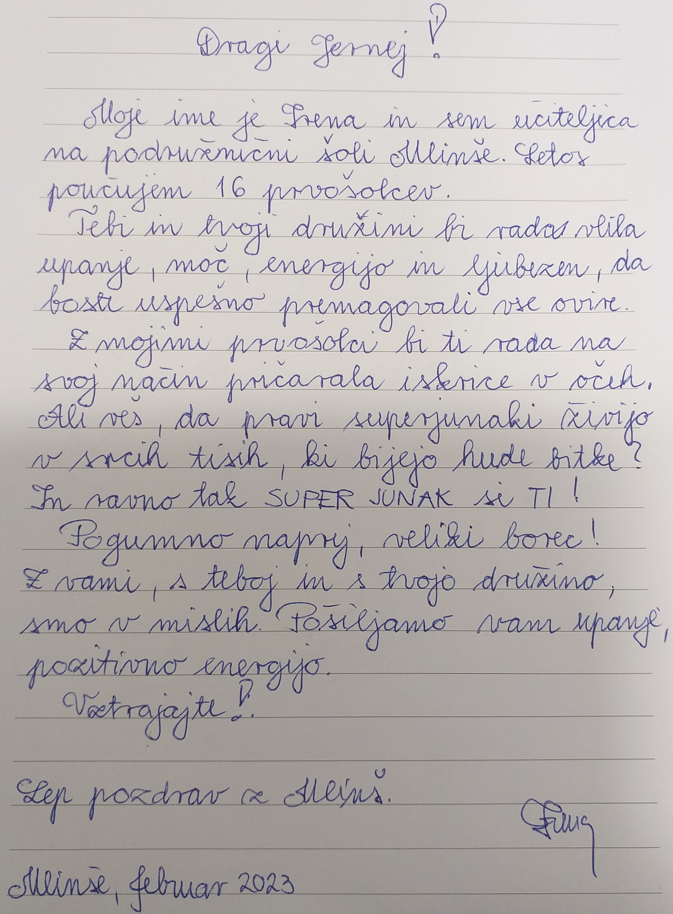 Dragi Jernej!
Moje ime je Irena in sem učiteljica
na podružnični šoli Mlinše. Letos
poučujem 16 prvošolcev.
Tebi in tvoji družini bi rada vlila
upanje, moč, energijo in ljubezen, da
bosti uspešno premagovali vse ovire.
Z mojimi prvošolci bi ti rada na
svoj način pričarala iskrice v očeh.
Ali veš, da pravi superjunaki živijo
v srcih tistih, ki bijejo hude bitke?
In ravno tak SUPER JUNAK si TI!
Pogumno naprej, veliki borec!
Z vami, s teboj in s tvojo družino,
smo v mislih. Pošiljamo vam upanje,
pozitivno energijo.
Vztrajajte!
Lep pozdrav iz Mlinš.
Mlinše, februar 2023